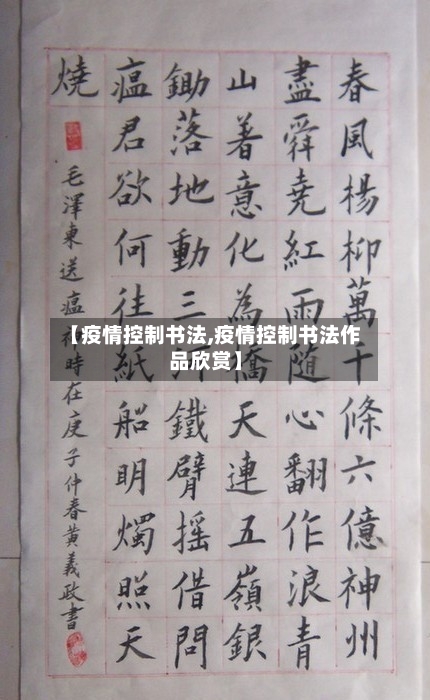 春風楊柳萬千條六億神州
盡舜堯紅雨隨心翻作浪青
山着意化為橋天連五嶺銀
鋤落地動三河鐵臂摇借問
瘟君欲何往紙船明燭照天
燒
毛澤東送瘟神時在庚子仲春黄義政書
【疫情控制书法,疫情控制书法作
品欣赏】